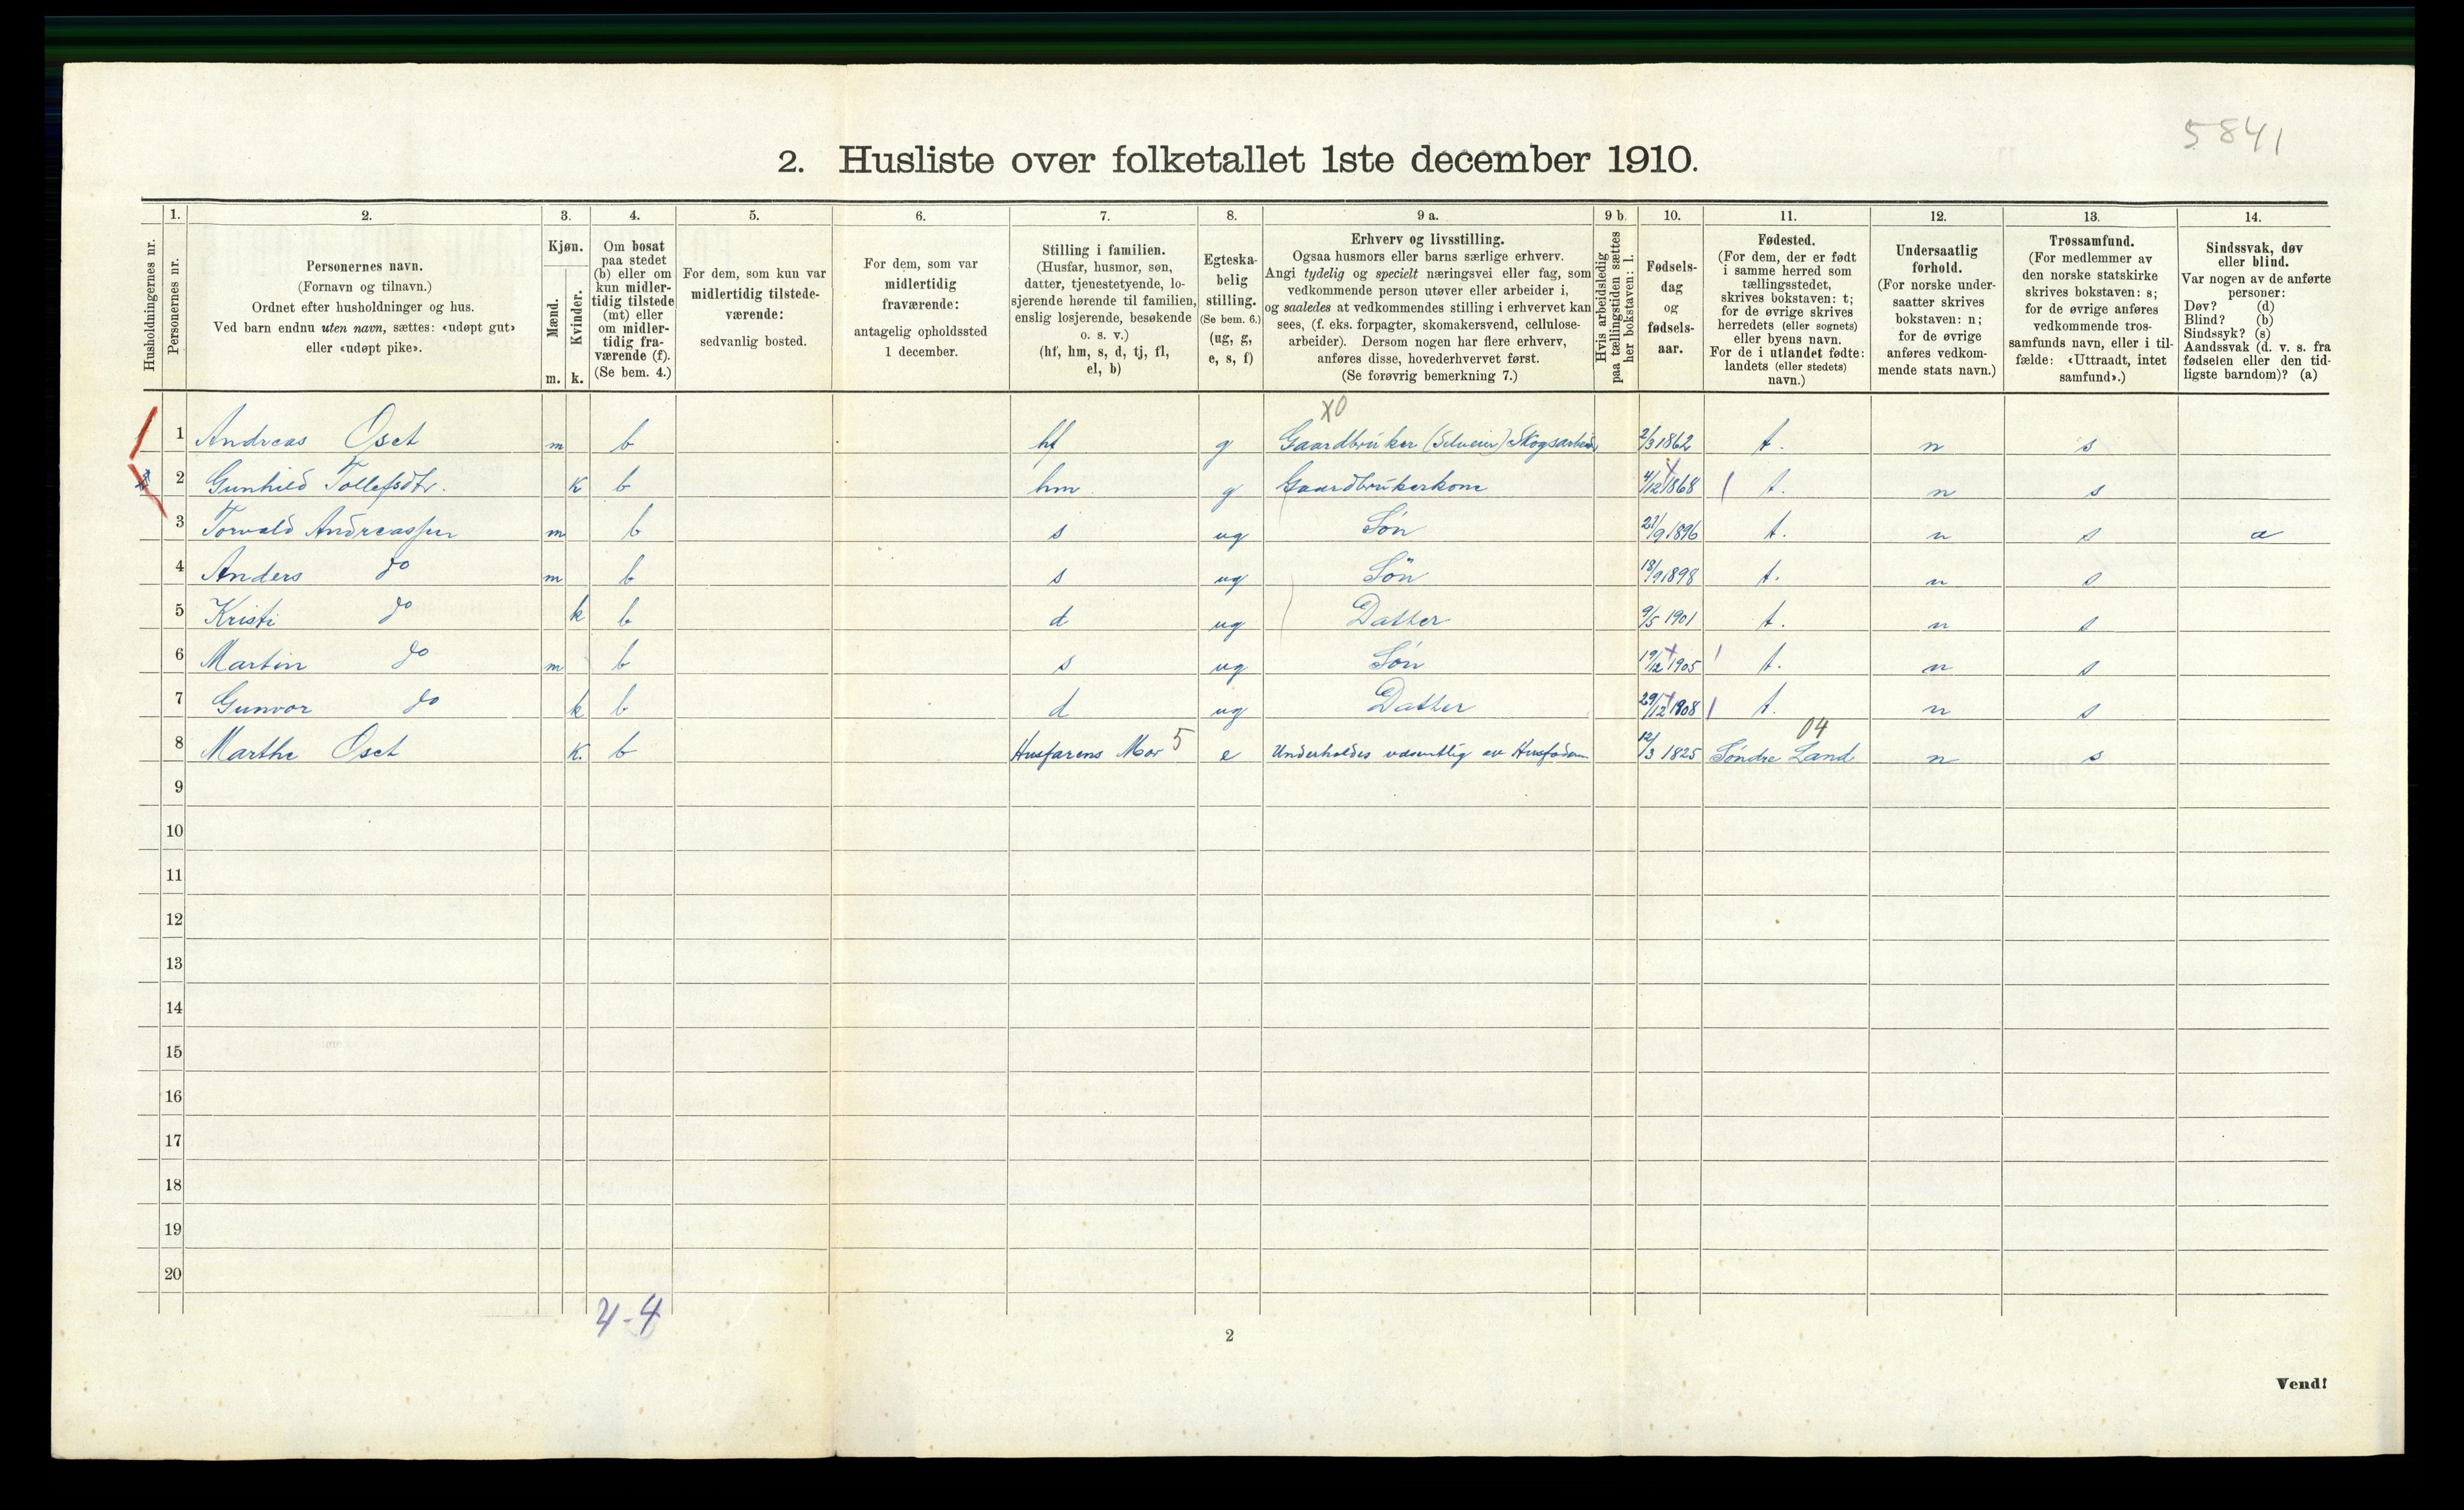 5841
2. Husliste over folketallet 1ste december 1910.
1. 2. 3. 4. 5. 6. 7. 8. 9 a. 9 b. 10. 11. 12. 13. 14.
Husholdningernes nr.
Personernes nr.
Personernes navn.
(Fornavn og tilnavn.)
Ordnet efter husholdninger og hus.
Ved barn endnu uten navn, sættes: «udøpt gut»
eller «udøpt pike».
Kjøn.
Mænd.
Kvinder.
m. k.
Om bosat
paa stedet
(b) eller om
kun midler-
tidig tilstede
(mt) eller
om midler-
tidig fra-
værende (f).
(Se bem. 4.)
For dem, som kun var
midlertidig tilstede-
værende:
sedvanlig bosted.
For dem, som var
midlertidig
fraværende:
antagelig opholdssted
1 december.
Stilling i familien.
(Husfar, husmor, søn,
datter, tjenestetyende, lo-
sjerende hørende til familien,
enslig losjerende, besøkende
o. s. v.)
(hf, hm, s, d, tj, fl,
el, b)
Egteska-
belig
stilling.
(Se bem. 6.)
(ug, g,
e, s, f)
Erhverv og livsstilling.
Ogsaa husmors eller barns særlige erhverv.
Angi tydelig og specielt næringsvei eller fag, som
vedkommende person utøver eller arbeider i,
og saaledes at vedkommendes stilling i erhvervet kan
sees, (f. eks. forpagter, skomakersvend, cellulose-
arbeider). Dersom nogen har flere erhverv,
anføres disse, hovederhvervet først.
(Se forøvrig bemerkning 7.)
Hvis arbeidsledig
paa tællingstiden sættes
her bokstaven: l.
Fødsels-
dag
og
fødsels-
aar.
Fødested.
(For dem, der er født
i samme herred som
tællingsstedet,
skrives bokstaven: t;
for de øvrige skrives
herredets (eller sognets)
eller byens navn.
For de i utlandet fødte:
landets (eller stedets)
navn.)
Undersaatlig
forhold.
(For norske under-
saatter skrives
bokstaven: n;
for de øvrige
anføres vedkom-
mende stats navn.)
Trossamfund.
(For medlemmer av
den norske statskirke
skrives bokstaven: s;
for de øvrige anføres
vedkommende tros-
samfunds navn, eller i til-
fælde: «Uttraadt, intet
samfund».)
Sindssvak, døv
eller blind.
Var nogen av de anførte
personer:
Døv? (d)
Blind? (b)
Sindssyk? (s)
Aandssvak (d. v. s. fra
fødselen eller den tid-
ligste barndom)? (a)
X0
1 Andreas Oset m b hf g Gaardbruker (Selveier) Skogsarbeid 2/3 1862 t. n s
2 Gunhild Tollefsdtr. k b hm g Gaardbrukerkone 4/12 1868 t. n s
3 Torvald Andreassen m b s ug Søn 23/9 1896 t. n s a
4 Anders do m b s ug Søn 18/9 1898 t. n s
5 Kristi do k b d ug Datter 9/5 1901 t. n s
6 Martin do m b s ug Søn 19/12 1905 t. n s
7 Gunvor do k b d ug Datter 29/12 1908 t. n s
04
8 Marthe Oset k. b Husfarens Mor 5 e Underholdes væsentlig av Husfaderen 12/3 1825 Søndre Land n s
9
10
11
12
13
14
15
16
17
18
19
20
4-4
2
Vend!